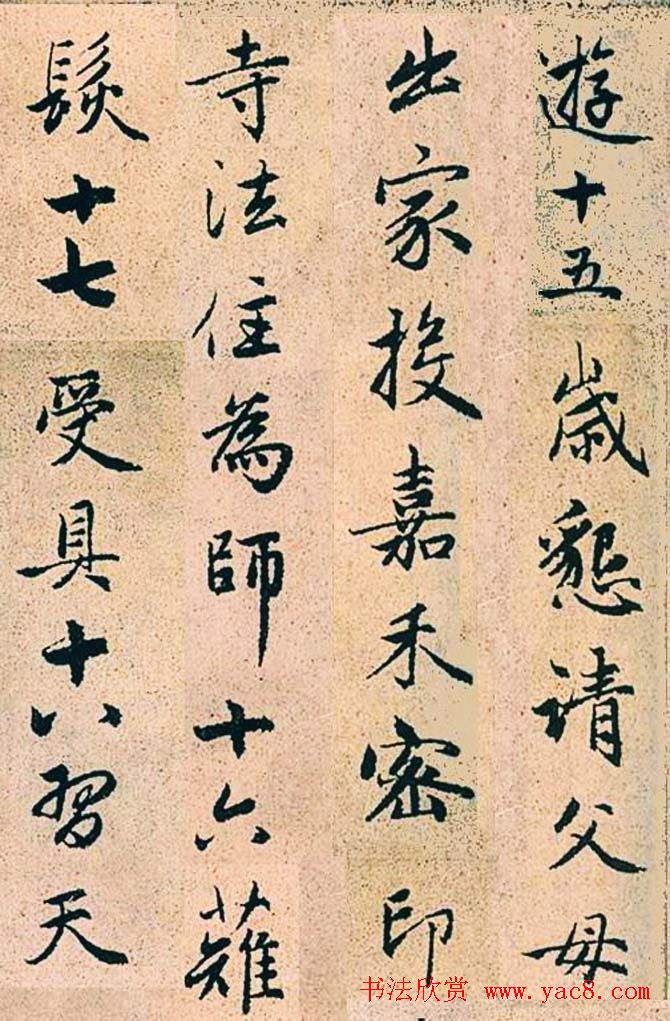 遊十五歲懇請父母
出家投嘉禾密印
寺法住為師十六薙
髮十七受具十八習天
书法欣赏 www.yac8.com